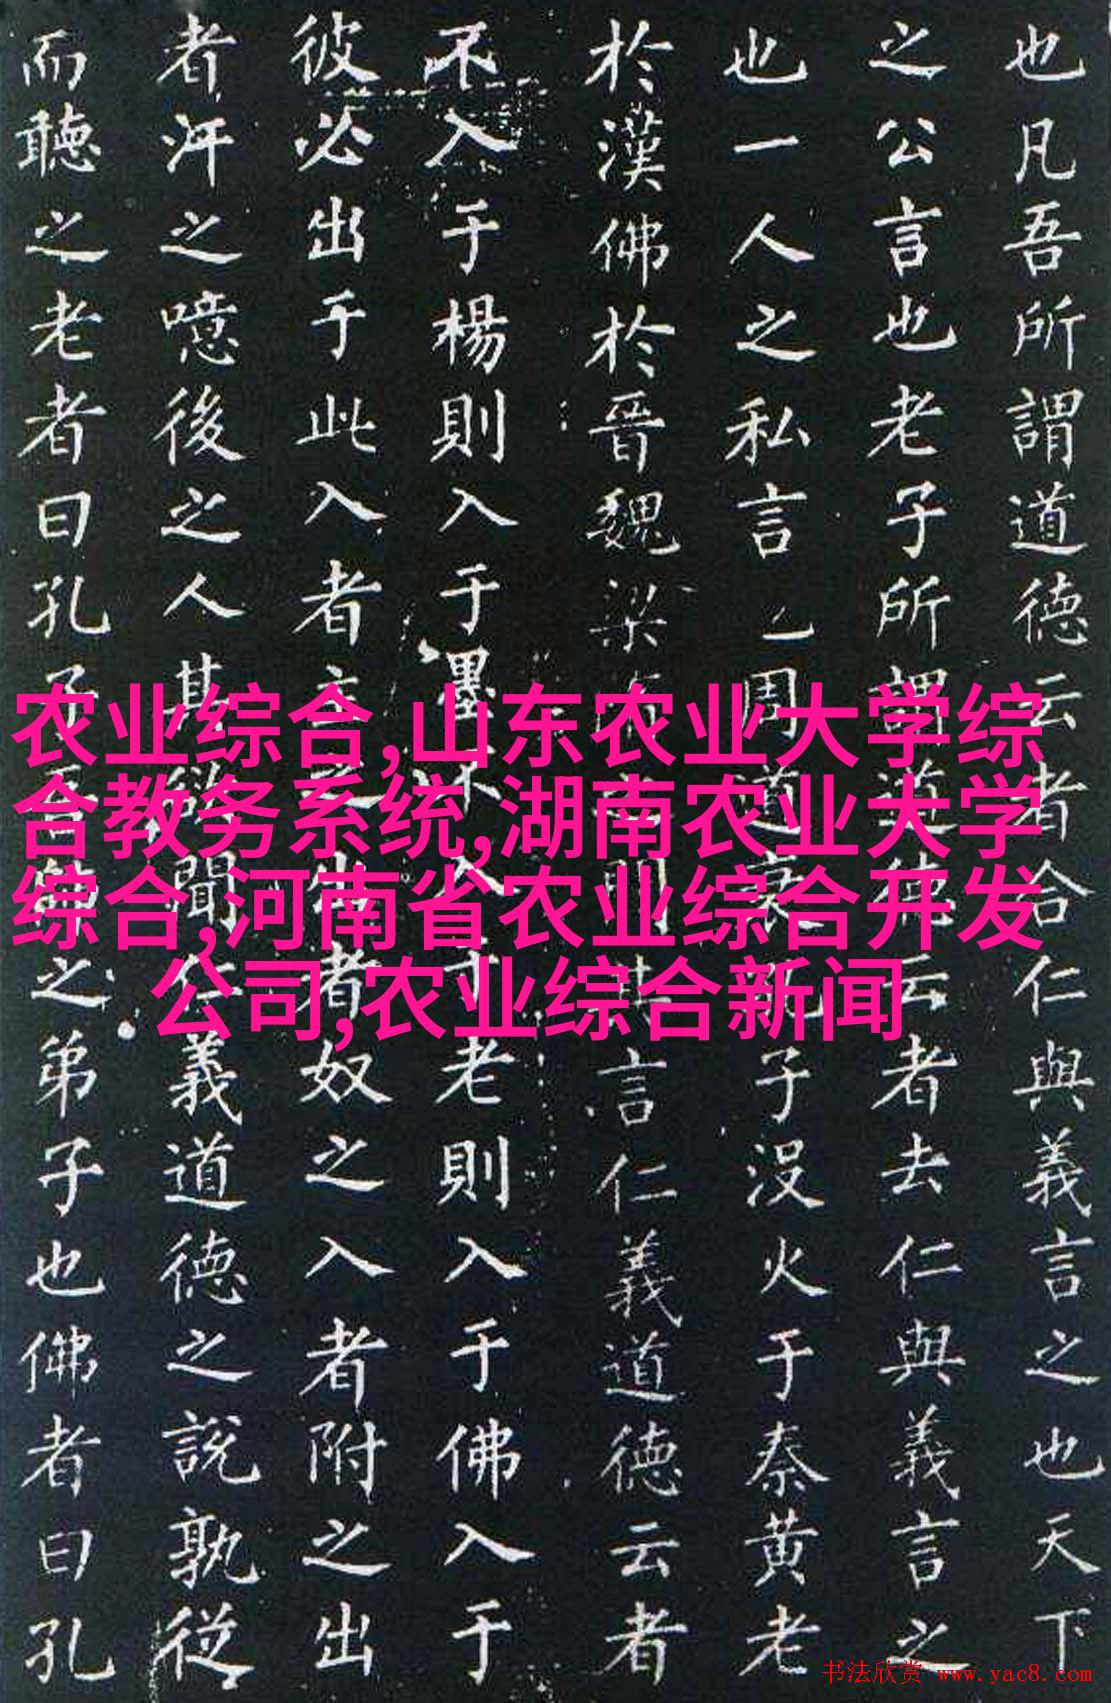 也凡吾所謂道德云者合仁與義言之也天下
之公言也老子所謂道德云者去仁與義言之
也一人之私言周道衰孔子没火于秦黄老
於漢佛於晉魏梁隋之間其言仁義道德云者
不入于楊則入于墨不入于老則入于佛入于
彼必出于此入者主之出者奴之入者附之出
者汙之噫後之人其欲聞仁義道德之說孰從
而聽之老者曰孔子吾師之弟子也佛者曰孔
农业综合,山东农业大学综
合教务系统,湖南农业大学
综合,河南省农业综合开发
公司,农业综合新闻
书法欣赏 www.yac8.com